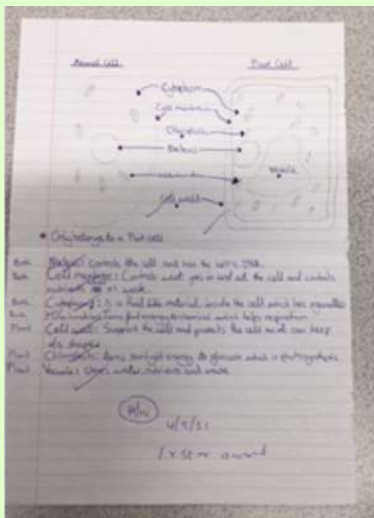 Animal Cell Plant Cell
Cytoplasm
Cell membrane
Chloroplasts
Nucleus
vacuole
Cell wall
* Only belongs to a Plant cell
Both Nucleus: controls the cell and has the cell's DNA.
Both Cell membrane: Controls what goes in and out the cell and controls
nutrients or waste.
Both Cytoplasm: is a fluid like material inside the cell which has organelles
Both Mitochondria: Turns energy chemical which helps respiration
Plant Cell wall: Support the cell and protects the cell so it can keep
its shape
Plant Chloroplasts: turns sunlight energy to glucose which is photosynthesis
Plant Vacuole: stores water, nutrients and waste
H/W
4/3/21
1 x star award